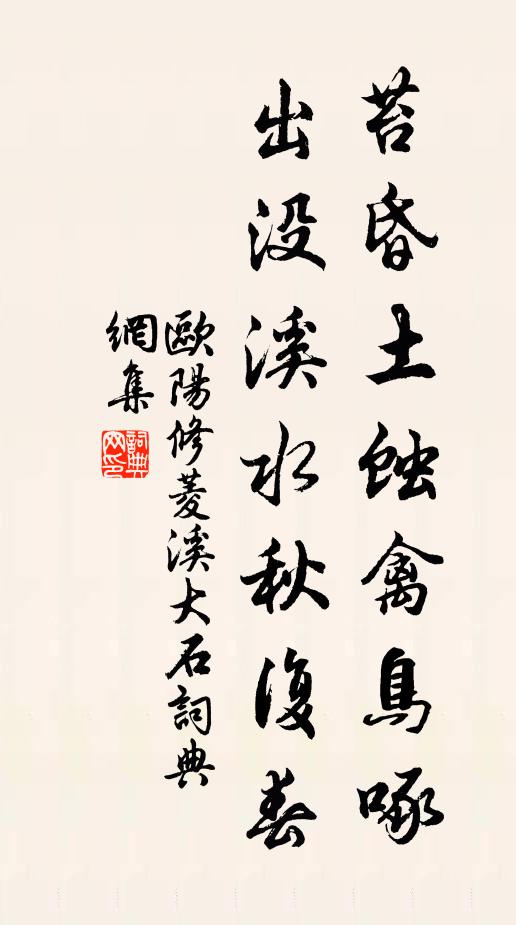 苔昏土蝕禽鳥啄
出没溪水秋復春
歐陽修菱溪大石詞典
網集
詞典
网印